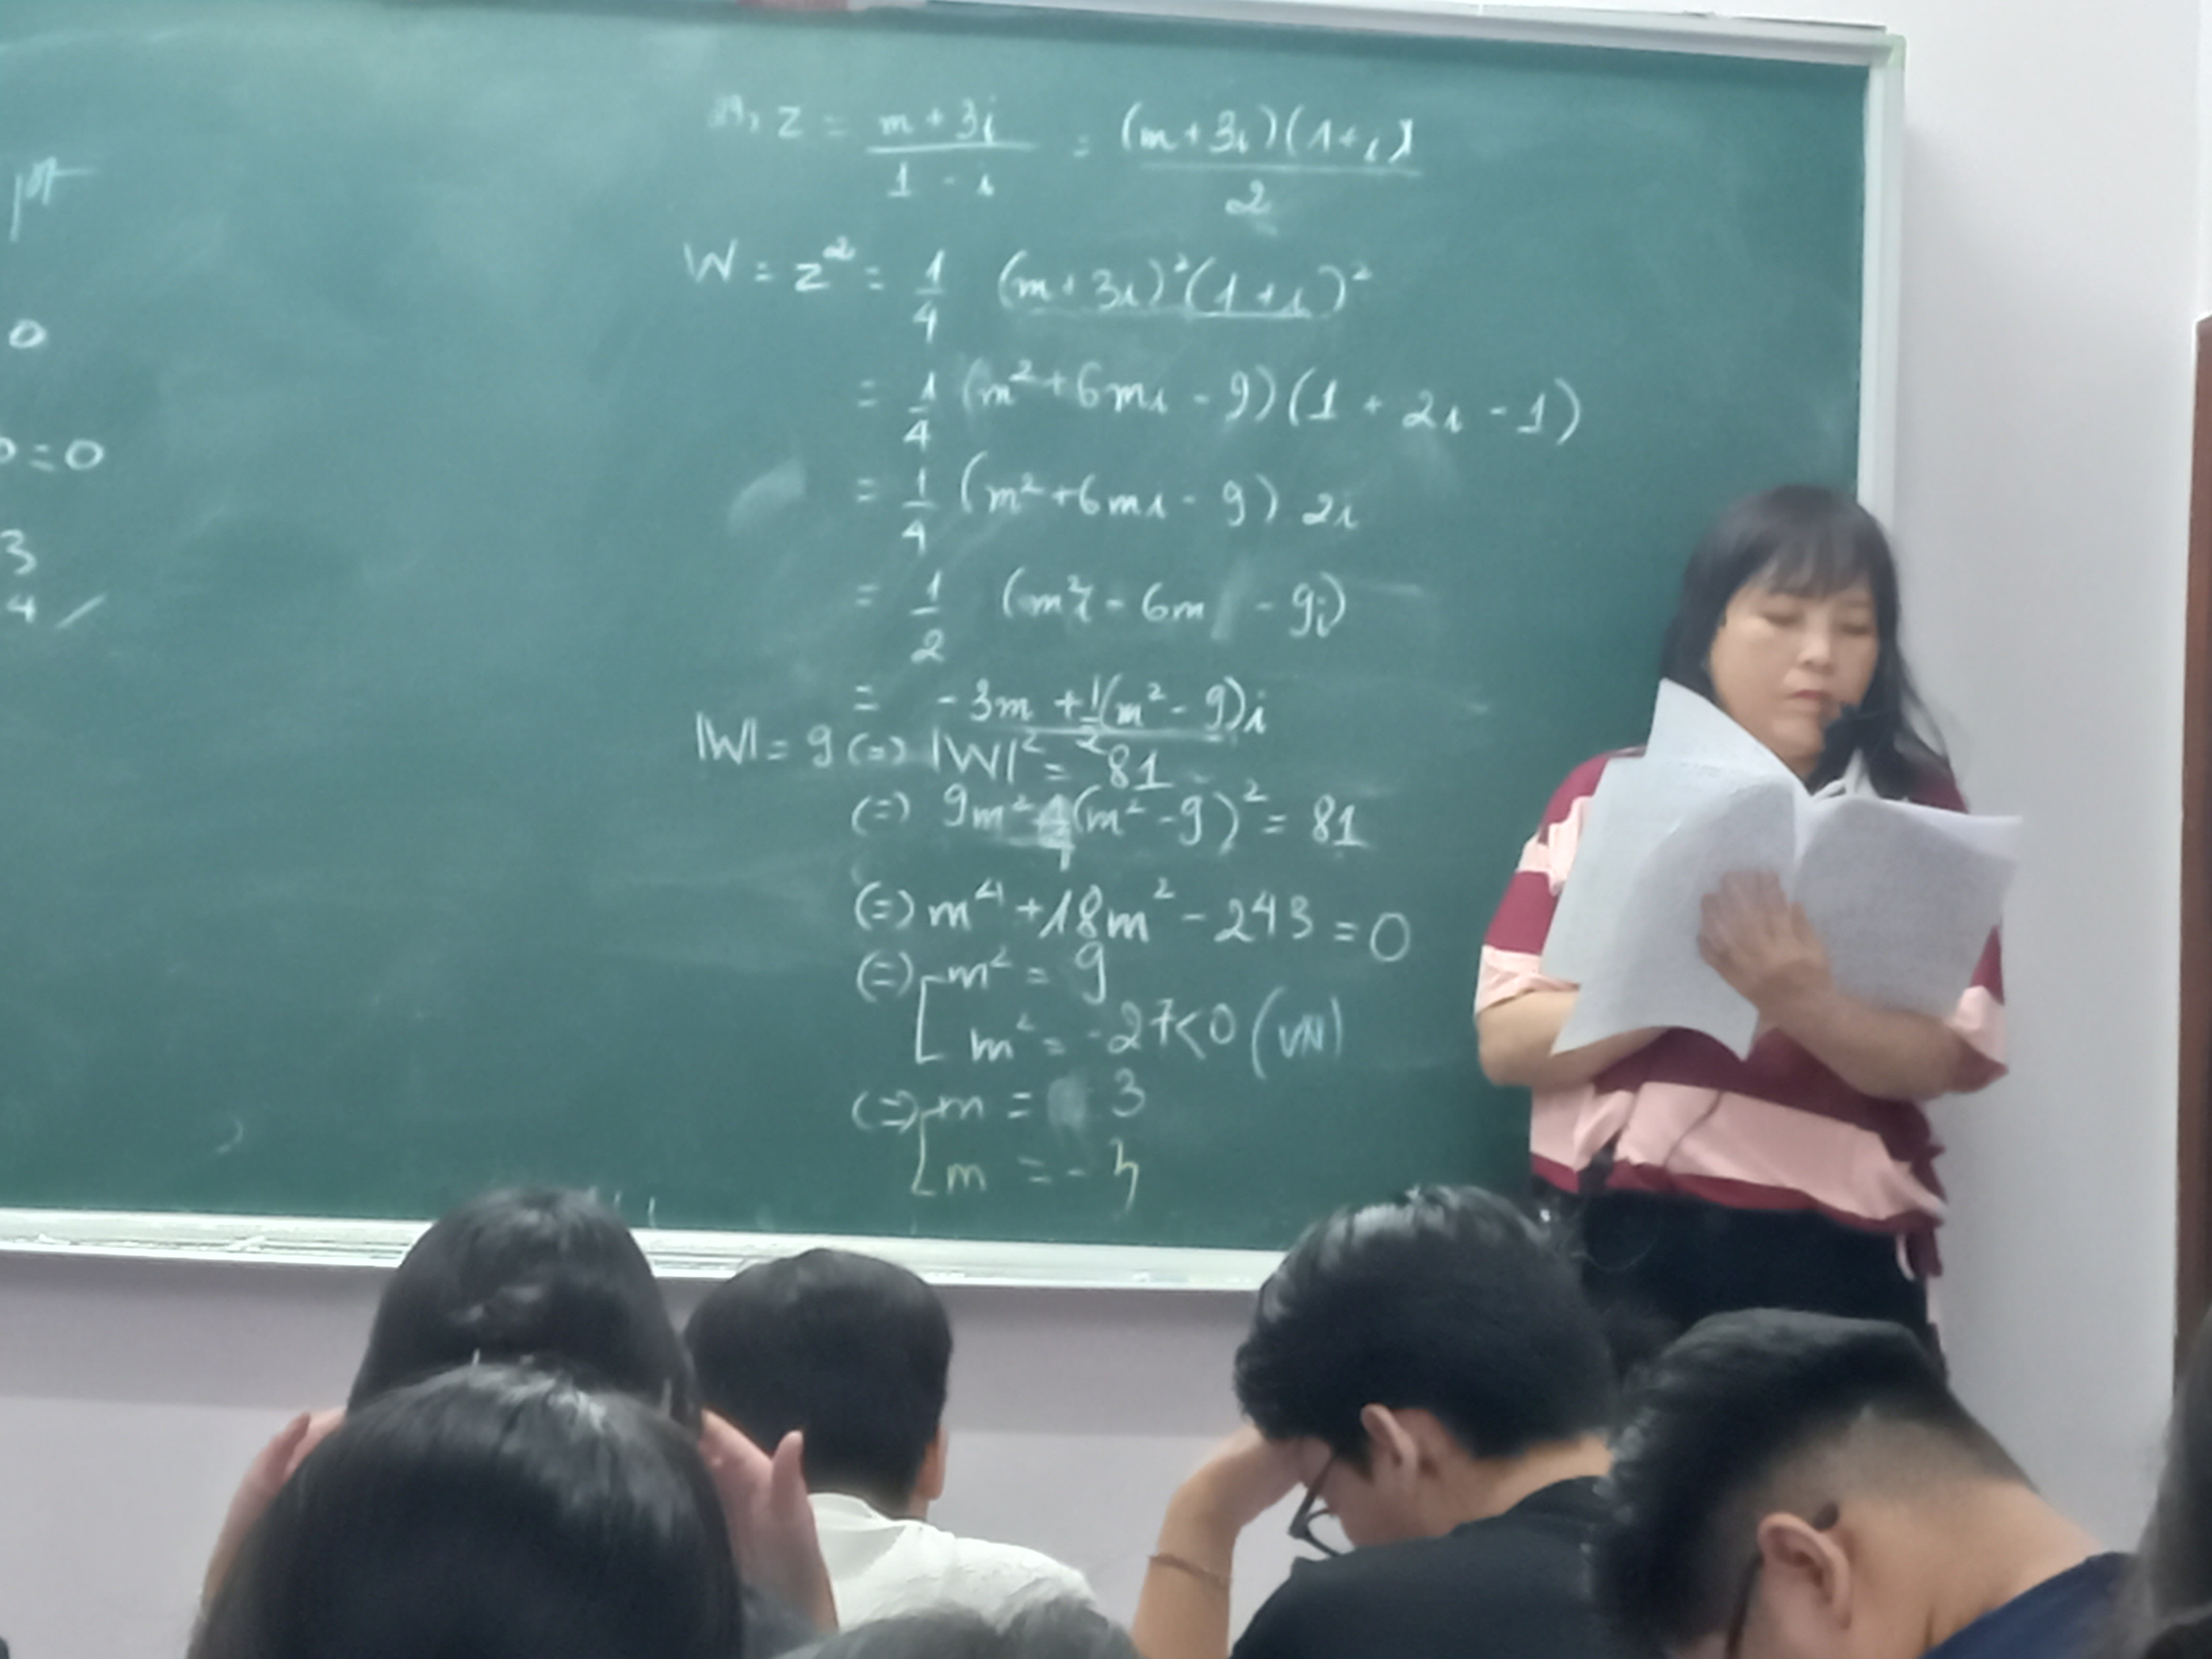 pt
0
=0
3
4
29, z = (m + 3i)/(1 - i) = (m+3i)(1+i)/2
W = z² = 1/4 (m+3i)²(1+i)²
= 1/4 (m²+6mi - 9)(1 + 2i - 1)
= 1/4 (m²+6mi - 9) 2i
= 1/2 (m²i - 6m - 9i)
= -3m + 1/2(m² - 9)i
|W| = 9 (=) |W|² = 81
(=) 9m² + 1/4(m² - 9)² = 81
(=) m⁴ + 18m² - 243 = 0
(=) [ m² = 9
m² = -27 < 0 (VN)
(=) [ m = 3
m = - 3